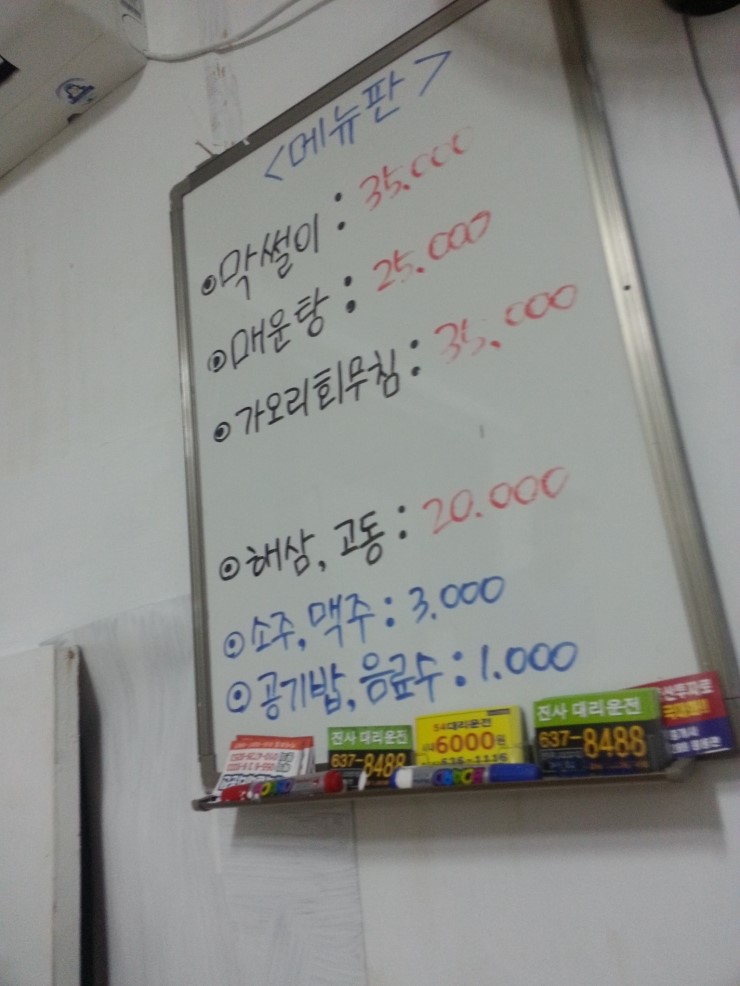 <메뉴판>
막썰이 : 35.000
매운탕 : 25.000
가오리회무침 : 35.000
해삼, 고동 : 20.000
소주, 맥주 : 3.000
공기밥, 음료수 : 1.000
전사 대리운전
637-8488
54대리운전
6000원
636-1116
전사 대리운전
637-8488